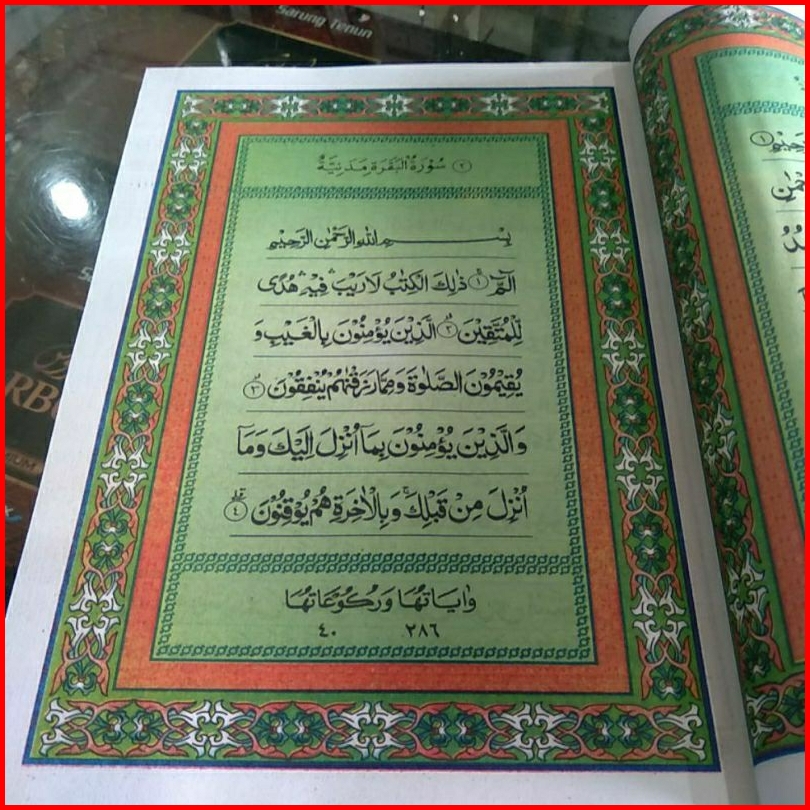 Sarung Tenun
٢ سُوْرَةُ الْبَقَرَةِ مَدَنِيَّةٌ
بِسْمِ اللهِ الرَّحْمٰنِ الرَّحِيْمِ
الٓمّٓ ۚ ١ ذٰلِكَ الْكِتٰبُ لَا رَيْبَ ۛ فِيْهِ ۛ هُدًى
لِّلْمُتَّقِيْنَ ۙ ٢ الَّذِيْنَ يُؤْمِنُوْنَ بِالْغَيْبِ وَ
يُقِيْمُوْنَ الصَّلٰوةَ وَمِمَّا رَزَقْنٰهُمْ يُنْفِقُوْنَ ۙ ٣
وَالَّذِيْنَ يُؤْمِنُوْنَ بِمَآ اُنْزِلَ اِلَيْكَ وَمَآ
اُنْزِلَ مِنْ قَبْلِكَ ۚ وَبِالْاٰخِرَةِ هُمْ يُوْقِنُوْنَ ۗ ٤
وَاٰيَاتُهَا وَرُكُوْعَاتُهَا
٢٨٦ ٤٠